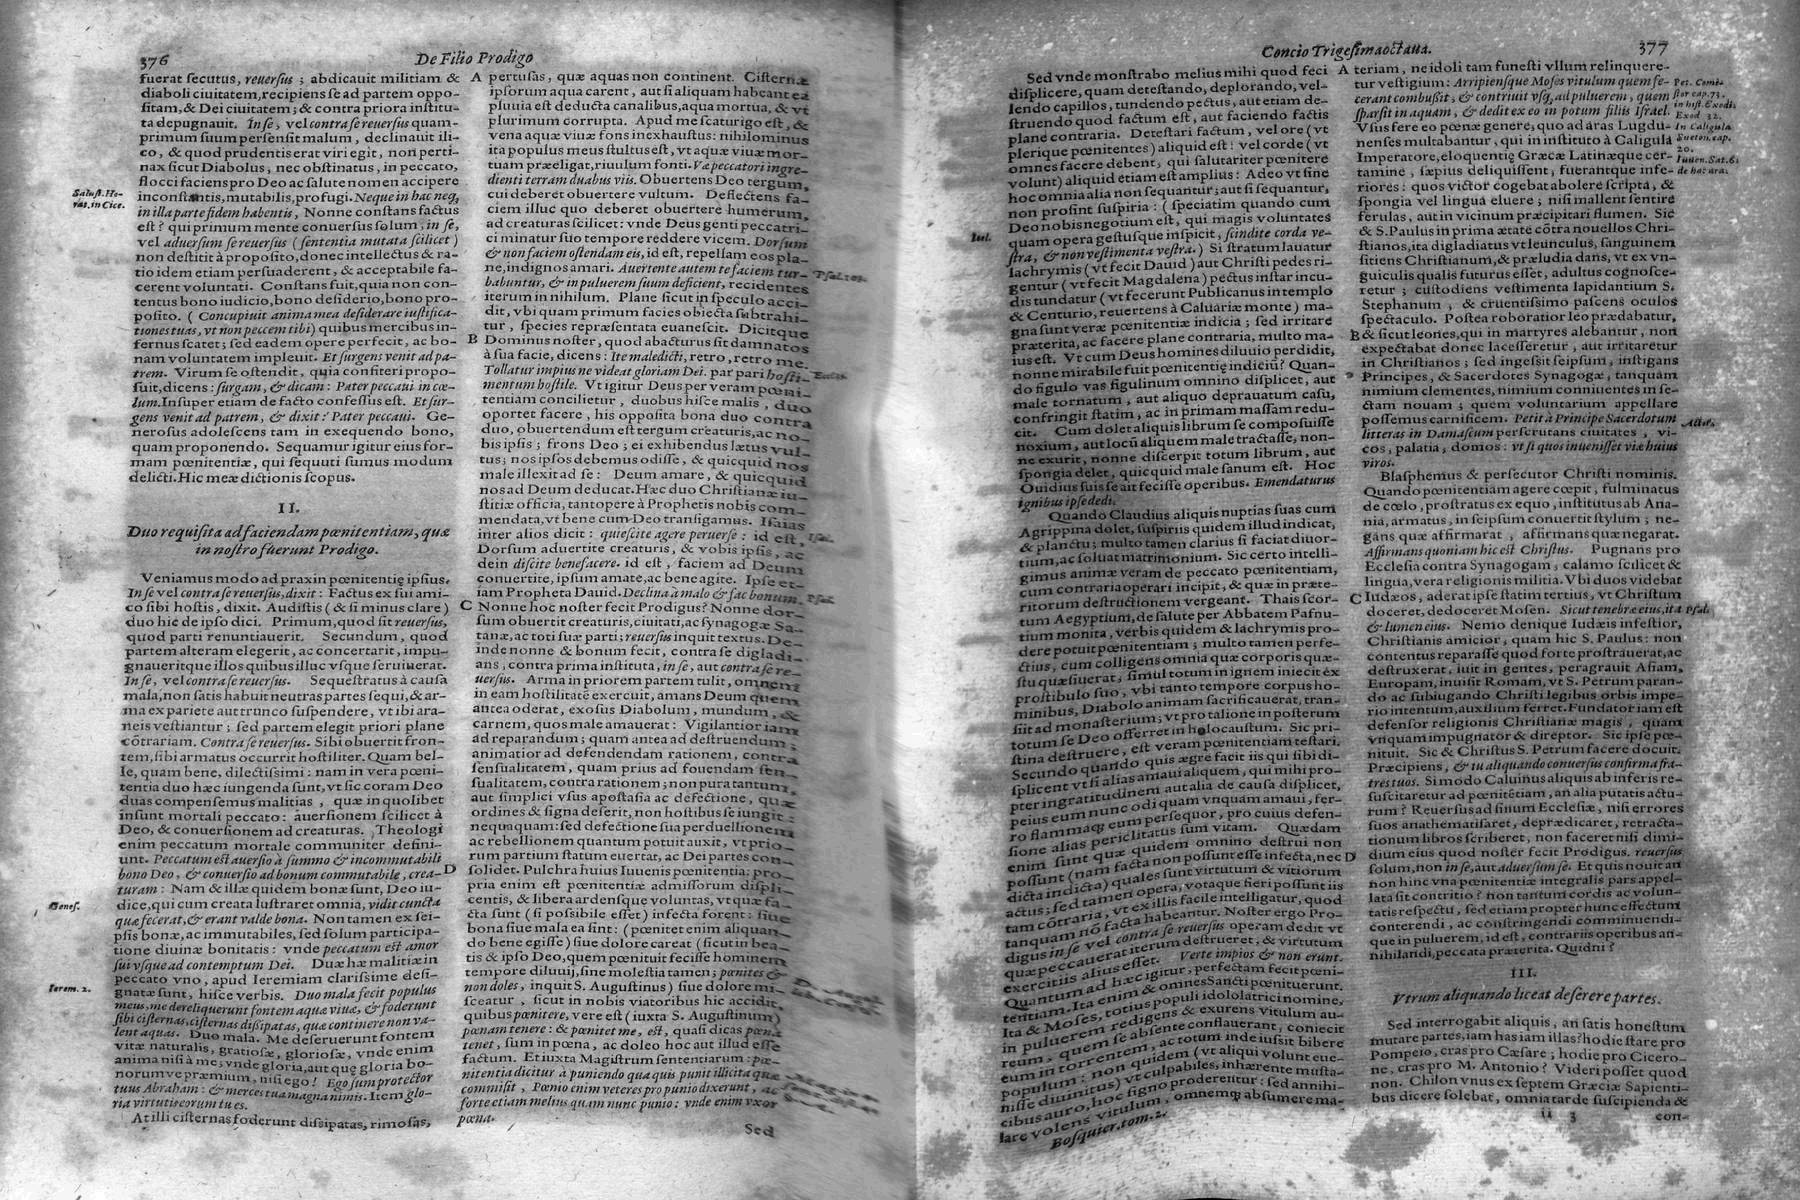 376
De Filio Prodigo
fuerat secutus, reuersus ; abdicauit militiam &
diaboli ciuitatem, recipiens se ad partem oppo-
sitam, & Dei ciuitatem ; & contra priora institu-
ta depugnauit. In se, vel contra se reuersus quam-
primum suum persensit malum, declinauit ili-
co, & quod prudentis erat viri egit, non perti-
nax sicut Diabolus, nec obstinatus, in peccato,
flocci faciens pro Deo ac salute nomen accipere
inconstantis, mutabilis, profugi. Neque in hac neq;
in illa parte fidem habentis, Nonne constans factus
est? qui primum mente conuersus solum, in se,
vel aduersum se reuersus ( sententia mutata scilicet )
non destitit à proposito, donec intellectus & ra-
tio idem etiam persuaderent, & acceptabile fa-
cerent voluntati. Constans fuit, quia non con-
tentus bono iudicio, bono desiderio, bono pro-
posito. ( Concupiuit anima mea desiderare iustifica-
tiones tuas, vt non peccem tibi) quibus mercibus in-
fernus scatet; sed eadem opere perfecit, ac bo-
nam voluntatem impleuit. Et surgens venit ad pa-
trem. Virum se ostendit, quia confiteri propo-
suit, dicens : surgam, & dicam : Pater peccaui in cœ-
lum. Insuper etiam de facto confessus est. Et sur-
gens venit ad patrem, & dixit : Pater peccaui. Ge-
nerosus adolescens tam in exequendo bono,
quam proponendo. Sequamur igitur eius for-
mam pœnitentiæ, qui sequuti sumus modum
delicti. Hic meæ dictionis scopus.
II.
Duo requisita ad faciendam pœnitentiam, quæ
in nostro fuerunt Prodigo.
Veniamus modo ad praxin pœnitentię ipsius.
In se vel contra se reuersus, dixit : Factus ex sui ami-
co sibi hostis, dixit. Audistis ( & si minus clare )
duo hic de ipso dici. Primum, quod sit reuersus,
quod parti renuntiauerit. Secundum, quod
partem alteram elegerit, ac concertarit, impu-
gnaueritque illos quibus illuc vsque seruiuerat.
In se, vel contra se reuersus. Sequestratus à causa
mala, non satis habuit neutras partes sequi, & ar-
ma ex pariete aut trunco suspendere, vt ibi ara-
neis vestiantur ; sed partem elegit priori plane
cõtrariam. Contra se reuersus. Sibi obuertit fron-
tem, sibi armatus occurrit hostiliter. Quam bel-
le, quam bene, dilectissimi : nam in vera pœni-
tentia duo hæc iungenda sunt, vt sic coram Deo
duas compensemus malitias , quæ in quolibet
insunt mortali peccato : auersionem scilicet à
Deo, & conuersionem ad creaturas. Theologi
enim peccatum mortale communiter defini-
unt. Peccatum est auersio à summo & incommutabili
bono Deo, & conuersio ad bonum commutabile, crea-
turam : Nam & illæ quidem bonæ sunt, Deo iu-
dice, qui cum creata lustraret omnia, vidit cuncta
quæ fecerat, & erant valde bona. Non tamen ex sei-
psis bonæ, ac immutabiles, sed solum participa-
tione diuinæ bonitatis : vnde peccatum est amor
sui vsque ad contemptum Dei. Duæ hæ malitiæ in
peccato vno, apud Ieremiam clarissime desi-
gnatæ sunt, hisce verbis. Duo mala fecit populus
meus, me dereliquerunt fontem aquæ viuæ, & foderunt
sibi cisternas, cisternas dissipatas, quæ continere non va-
lent aquas. Duo mala. Me deseruerunt fontem
vitæ naturalis, gratiosæ, gloriosæ, vnde enim
anima nisi à me; vnde gloria, aut quę gloria bo-
norum ve præmium, nisi ego ! Ego sum protector
tuus Abraham : & merces tua magna nimis. Item glo-
ria virtutis eorum tu es.
At illi cisternas foderunt dissipatas, rimosas,
Salust. Ho-
rat. in Cice.
Genes.
Ierem. 2.
A
B
C
D
pertusas, quæ aquas non continent. Cisternæ
ipsorum aqua carent, aut si aliquam habeant ea
pluuia est deducta canalibus, aqua mortua, & vt
plurimum corrupta. Apud me scaturigo est, &
vena aquæ viuæ fons inexhaustus: nihilominus
ita populus meus stultus est, vt aquæ viuæ mor-
tuam præeligat, riuulum fonti. Væ peccatori ingre-
dienti terram duabus viis. Obuertens Deo tergum,
cui deberet obuertere vultum. Deflectens fa-
ciem illuc quo deberet obuertere humerum,
ad creaturas scilicet: vnde Deus genti peccatri-
ci minatur suo tempore reddere vicem. Dorsum
& non faciem ostendam eis, id est, repellam eos pla-
ne, indignos amari. Auertente autem te faciem tur-
babuntur, & in puluerem suum deficient, recidentes
iterum in nihilum. Plane sicut in speculo acci-
dit, vbi quam primum facies obiecta subtrahi-
tur , species repræsentata euanescit. Dicitque
Dominus noster, quod abacturus sit damnatos
à sua facie, dicens : Ite maledicti, retro , retro me.
Tollatur impius ne videat gloriam Dei. par pari hosti-
mentum hostile. Vt igitur Deus per veram pœni-
tentiam concilietur , duobus hisce malis , duo
oportet facere , his opposita bona duo contra
duo, obuertendum est tergum creaturis, ac no-
bis ipsis ; frons Deo ; ei exhibendus lætus vul-
tus; nos ipsos debemus odisse , & quicquid nos
male illexit ad se : Deum amare , & quicquid
nos ad Deum deducat. Hæc duo Christianæ iu-
stitiæ officia, tantopere à Prophetis nobis com-
mendata, vt bene cum Deo transigamus. Isaias
inter alios dicit : quiescite agere peruerse : id est,
Dorsum aduertite creaturis, & vobis ipsis, ac
dein discite benefacere. id est , faciem ad Deum
conuertite, ipsum amate, ac bene agite. Ipse et-
iam Propheta Dauid. Declina à malo & fac bonum.
Nonne hoc noster fecit Prodigus? Nonne dor-
sum obuertit creaturis, ciuitati, ac synagogæ Sa-
tanæ, ac toti suæ parti; reuersus inquit textus. De-
inde nonne & bonum fecit, contra se digladi-
ans , contra prima instituta, in se , aut contra se re-
uersus. Arma in priorem partem tulit, omnem
in eam hostilitatẽ exercuit, amans Deum quem
antea oderat, exosus Diabolum , mundum , &
carnem, quos male amauerat : Vigilantior iam
ad reparandum ; quam antea ad destruendum ;
animatior ad defendendam rationem, contra
sensualitatem , quam prius ad fouendam sen-
sualitatem, contra rationem ; non pura tantum,
aut simplici vsus apostasia ac defectione , quæ
ordines & signa deserit, non hostibus se iungit :
nequaquam: sed defectione sua perduellionem
ac rebellionem quantum potuit auxit, vt prio-
rum partium statum euertat, ac Dei partes con-
solidet. Pulchra huius Iuuenis pœnitentia; pro-
pria enim est pœnitentiæ admissorum displi-
centis, & libera ardensque voluntas, vt quæ fa-
cta sunt ( si possibile esset ) infecta forent : siue
bona siue mala ea sint: ( pœnitet enim aliquan-
do bene egisse ) siue dolore careat ( sicut in bea-
tis & ipso Deo, quem pœnituit fecisse hominem
tempore diluuij, sine molestia tamen; pœnites &
non doles , inquit S. Augustinus ) siue dolore mi-
sceatur , sicut in nobis viatoribus hic accidit,
quibus pœnitere, vere est ( iuxta S. Augustinum )
pœnam tenere : & pœnitet me, est, quasi dicas pœna
tenet , sum in pœna, ac doleo hoc aut illud esse
factum. Et iuxta Magistrum sententiarum : pœ-
nitentia dicitur à puniendo qua quis punit illicita quæ
commisit , Pœnio enim veteres pro punio dixerunt, ac
forte etiam melius quam nunc punio : vnde enim vxor
pœna.
Sed
Eccles.
Isai.
Psal.
377
Concio Trigesimaoctaua.
Sed vnde monstrabo melius mihi quod feci
displicere, quam detestando, deplorando, vel-
lendo capillos, tundendo pectus, aut etiam de-
struendo quod factum est, aut faciendo factis
plane contraria. Detestari factum, vel ore ( vt
plerique pœnitentes ) aliquid est : vel corde ( vt
omnes facere debent, qui salutariter pœnitere
volunt) aliquid etiam est amplius : Adeo vt sine
hoc omnia alia non sequantur; aut si sequantur,
non prosint suspiria : ( speciatim quando cum
Deo nobis negotium est, qui magis voluntates
quam opera gestusque inspicit, scindite corda ve-
stra, & non vestimenta vestra.) Si stratum lauatur
lachrymis ( vt fecit Dauid ) aut Christi pedes ri-
gentur ( vt fecit Magdalena ) pectus instar incu-
dis tundatur ( vt fecerunt Publicanus in templo
& Centurio, reuertens à Caluariæ monte) ma-
gna sunt veræ pœnitentiæ indicia ; sed irritare
præterita, ac facere plane contraria, multo ma-
ius est. Vt cum Deus homines diluuio perdidit,
nonne mirabile fuit pœnitentię indiciũ? Quan-
do figulo vas figulinum omnino displicet, aut
male tornatum , aut aliquo deprauatum casu,
confringit statim, ac in primam massam redu-
cit. Cum dolet aliquis librum se composuisse
noxium, aut locũ aliquem male tractasse, non-
ne exurit, nonne discerpit totum librum, aut
spongia delet, quicquid male sanum est. Hoc
Ouidius suis se ait fecisse operibus. Emendaturus
ignibus ipse dedi.
Quando Claudius aliquis nuptias suas cum
Agrippina dolet, suspiriis quidem illud indicat,
& planctu; multo tamen clarius si faciat diuor-
tium, ac soluat matrimonium. Sic certo intelli-
gimus animæ veram de peccato pœnitentiam,
cum contraria operari incipit, & quæ in præte-
ritorum destructionem vergeant. Thais scor-
tum Aegyptium, de salute per Abbatem Pafnu-
tium monita, verbis quidem & lachrymis pro-
dere potuit pœnitentiam ; multo tamen perfe-
ctius, cum colligens omnia quæ corporis quæ-
stu quæsiuerat; simul totum in ignem iniecit ex
prostibulo suo , vbi tanto tempore corpus ho-
minibus, Diabolo animam sacrificauerat, tran-
siit ad monasterium; vt pro talione in posterum
totum se Deo offerret in holocaustum. Sic pri-
stina destruere, est veram pœnitentiam testari.
Secundo quando quis ægre facit iis qui sibi di-
splicent vt si alias amaui aliquem, qui mihi pro-
pter ingratitudinem aut alia de causa displicet,
peius eum nunc odi quam vnquam amaui, fer-
ro flammaq; eum persequor, pro cuius defen-
sione alias periclitatus sum vitam. Quædam
enim sunt quæ quidem omnino destrui non
possunt (nam facta non possunt esse infecta, nec
dicta indicta) quales sunt virtutum & vitiorum
actus; sed tamen opera, votaque fieri possunt iis
tam cõtraria, vt ex illis facile intelligatur, quod
tanquam nõ facta habeantur. Noster ergo Pro-
digus in se vel contra se reuersus operam dedit vt
quæ peccauerat iterum destrueret, & virtutum
exercitiis alius esset. Verte impios & non erunt.
Quantum ad hæc igitur, perfectam fecit pœni-
tentiam. Ita enim & omnes Sancti pœnituerunt.
Ita & Moses, totius populi idololatrici nomine,
in puluerem redigens & exurens vitulum au-
reum , quem se absente conflauerant, coniecit
eum in torrentem, ac totum inde iussit bibere
populum : non quidem (vt aliqui volunt eue-
nisse diuinitus) vt culpabiles, inhærente musta-
cibus auro, hoc signo proderentur : sed annihi-
lare volens vitulum, omnemq; absumere ma-
Bosquier. tom. 2.
Ioel.
A
B
C
D
teriam, ne idoli tam funesti vllum relinquere-
tur vestigium: Arripiensque Moses vitulum quem fe-
cerant combussit, & contriuit vsq; ad puluerem, quem
sparsit in aquam, & dedit ex eo in potum filiis Israel.
Vsus fere eo pœnæ genere, quo ad aras Lugdu-
nenses multabantur , qui in instituto à Caligula
Imperatore, eloquentię Græcæ Latinæque cer-
tamine , sæpius deliquissent, fuerantque infe-
riores : quos victor cogebat abolere scripta , &
spongia vel lingua eluere ; nisi mallent sentire
ferulas, aut in vicinum præcipitari flumen. Sic
& S. Paulus in prima ætate cõtra nouellos Chri-
stianos, ita digladiatus vt leunculus, sanguinem
sitiens Christianum, & præludia dans, vt ex vn-
guiculis qualis futurus esset, adultus cognosce-
retur ; custodiens vestimenta lapidantium S.
Stephanum , & cruentissimo pascens oculos
spectaculo. Postea roboratior leo prædabatur,
& sicut leones, qui in martyres alebantur , non
expectabat donec lacesseretur , aut irritaretur
in Christianos ; sed ingessit seipsum, instigans
Principes, & Sacerdotes Synagogæ , tanquam
nimium clementes, nimium conniuentes in se-
ctam nouam ; quem voluntarium appellare
possemus carnificem. Petit à Principe Sacerdotum
litteras in Damascum perscrutans ciuitates , vi-
cos, palatia, domos : vt si quos inuenisset viæ huius
viros.
Blasphemus & persecutor Christi nominis.
Quando pœnitentiam agere cœpit, fulminatus
de cœlo, prostratus ex equo, institutus ab Ana-
nia, armatus , in seipsum conuertit stylum ; ne-
gans quæ affirmarat , affirmans quæ negarat.
Affirmans quoniam hic est Christus. Pugnans pro
Ecclesia contra Synagogam, calamo scilicet &
lingua, vera religionis militia. Vbi duos videbat
Iudæos, aderat ipse statim tertius, vt Christum
doceret, dedoceret Mosen. Sicut tenebræ eius, ita
& lumen eius. Nemo denique Iudæis infestior,
Christianis amicior, quam hic S. Paulus: non
contentus reparasse quod forte prostrauerat, ac
destruxerat, iuit in gentes, peragrauit Asiam,
Europam, inuisit Romam, vt S. Petrum paran-
do ac subiugando Christi legibus orbis impe-
rio intentum, auxilium ferret. Fundator iam est
defensor religionis Christianæ magis , quam
vnquam impugnator & direptor. Sic ipse pœ-
nituit. Sic & Christus S. Petrum facere docuit.
Præcipiens, & tu aliquando conuersus confirma fra-
tres tuos. Si modo Caluinus aliquis ab inferis re-
suscitaretur ad pœnitẽtiam, an alia putatis actu-
rum ? Reuersus ad sinum Ecclesiæ, nisi errores
suos anathematisaret, deprædicaret, retracta-
tionum libros scriberet, non faceret nisi dimi-
dium eius quod noster fecit Prodigus. reuersus
solum, non in se, aut aduersum se. Et quis nouit an
non hinc vna pœnitentiæ integralis pars appel-
lata sit contritio ? non tantum cordis ac volun-
tatis respectu, sed etiam propter hunc effectum
conterendi , ac constringendi comminuendi-
que in puluerem, id est, contrariis operibus an-
nihilandi, peccata præterita. Quidni ?
III.
Vtrum aliquando liceat deserere partes.
Sed interrogabit aliquis, an satis honestum
mutare partes, iam has iam illas? hodie stare pro
Pompeio, cras pro Cæsare ; hodie pro Cicero-
ne, cras pro M. Antonio ? Videri posset quod
non. Chilon vnus ex septem Græciæ Sapienti-
bus dicere solebat, omnia tarde suscipienda &
ii 3
con-
Pet. Comes-
stor cap. 73.
in hist. Exodi,
Exod 32.
In Caligula
Sueton. cap.
20.
Iuuen. Sat. 6.
de hac ara.
Actor.
Psal.